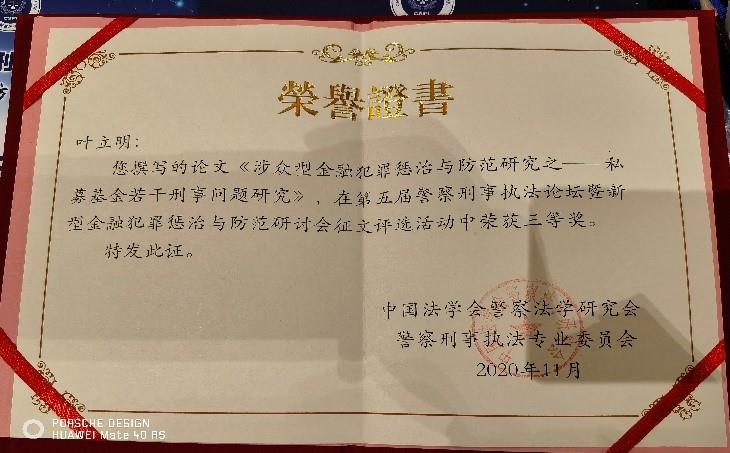 榮譽證書
叶立明：
您撰写的论文《涉众型金融犯罪惩治与防范研究之——私
募基金若干刑事问题研究》，在第五届警察刑事执法论坛暨新
型金融犯罪惩治与防范研讨会征文评选活动中荣获三等奖。
特发此证。
中国法学会警察法学研究会
警察刑事执法专业委员会
2020年11月
PORSCHE DESIGN
HUAWEI Mate 40 RS